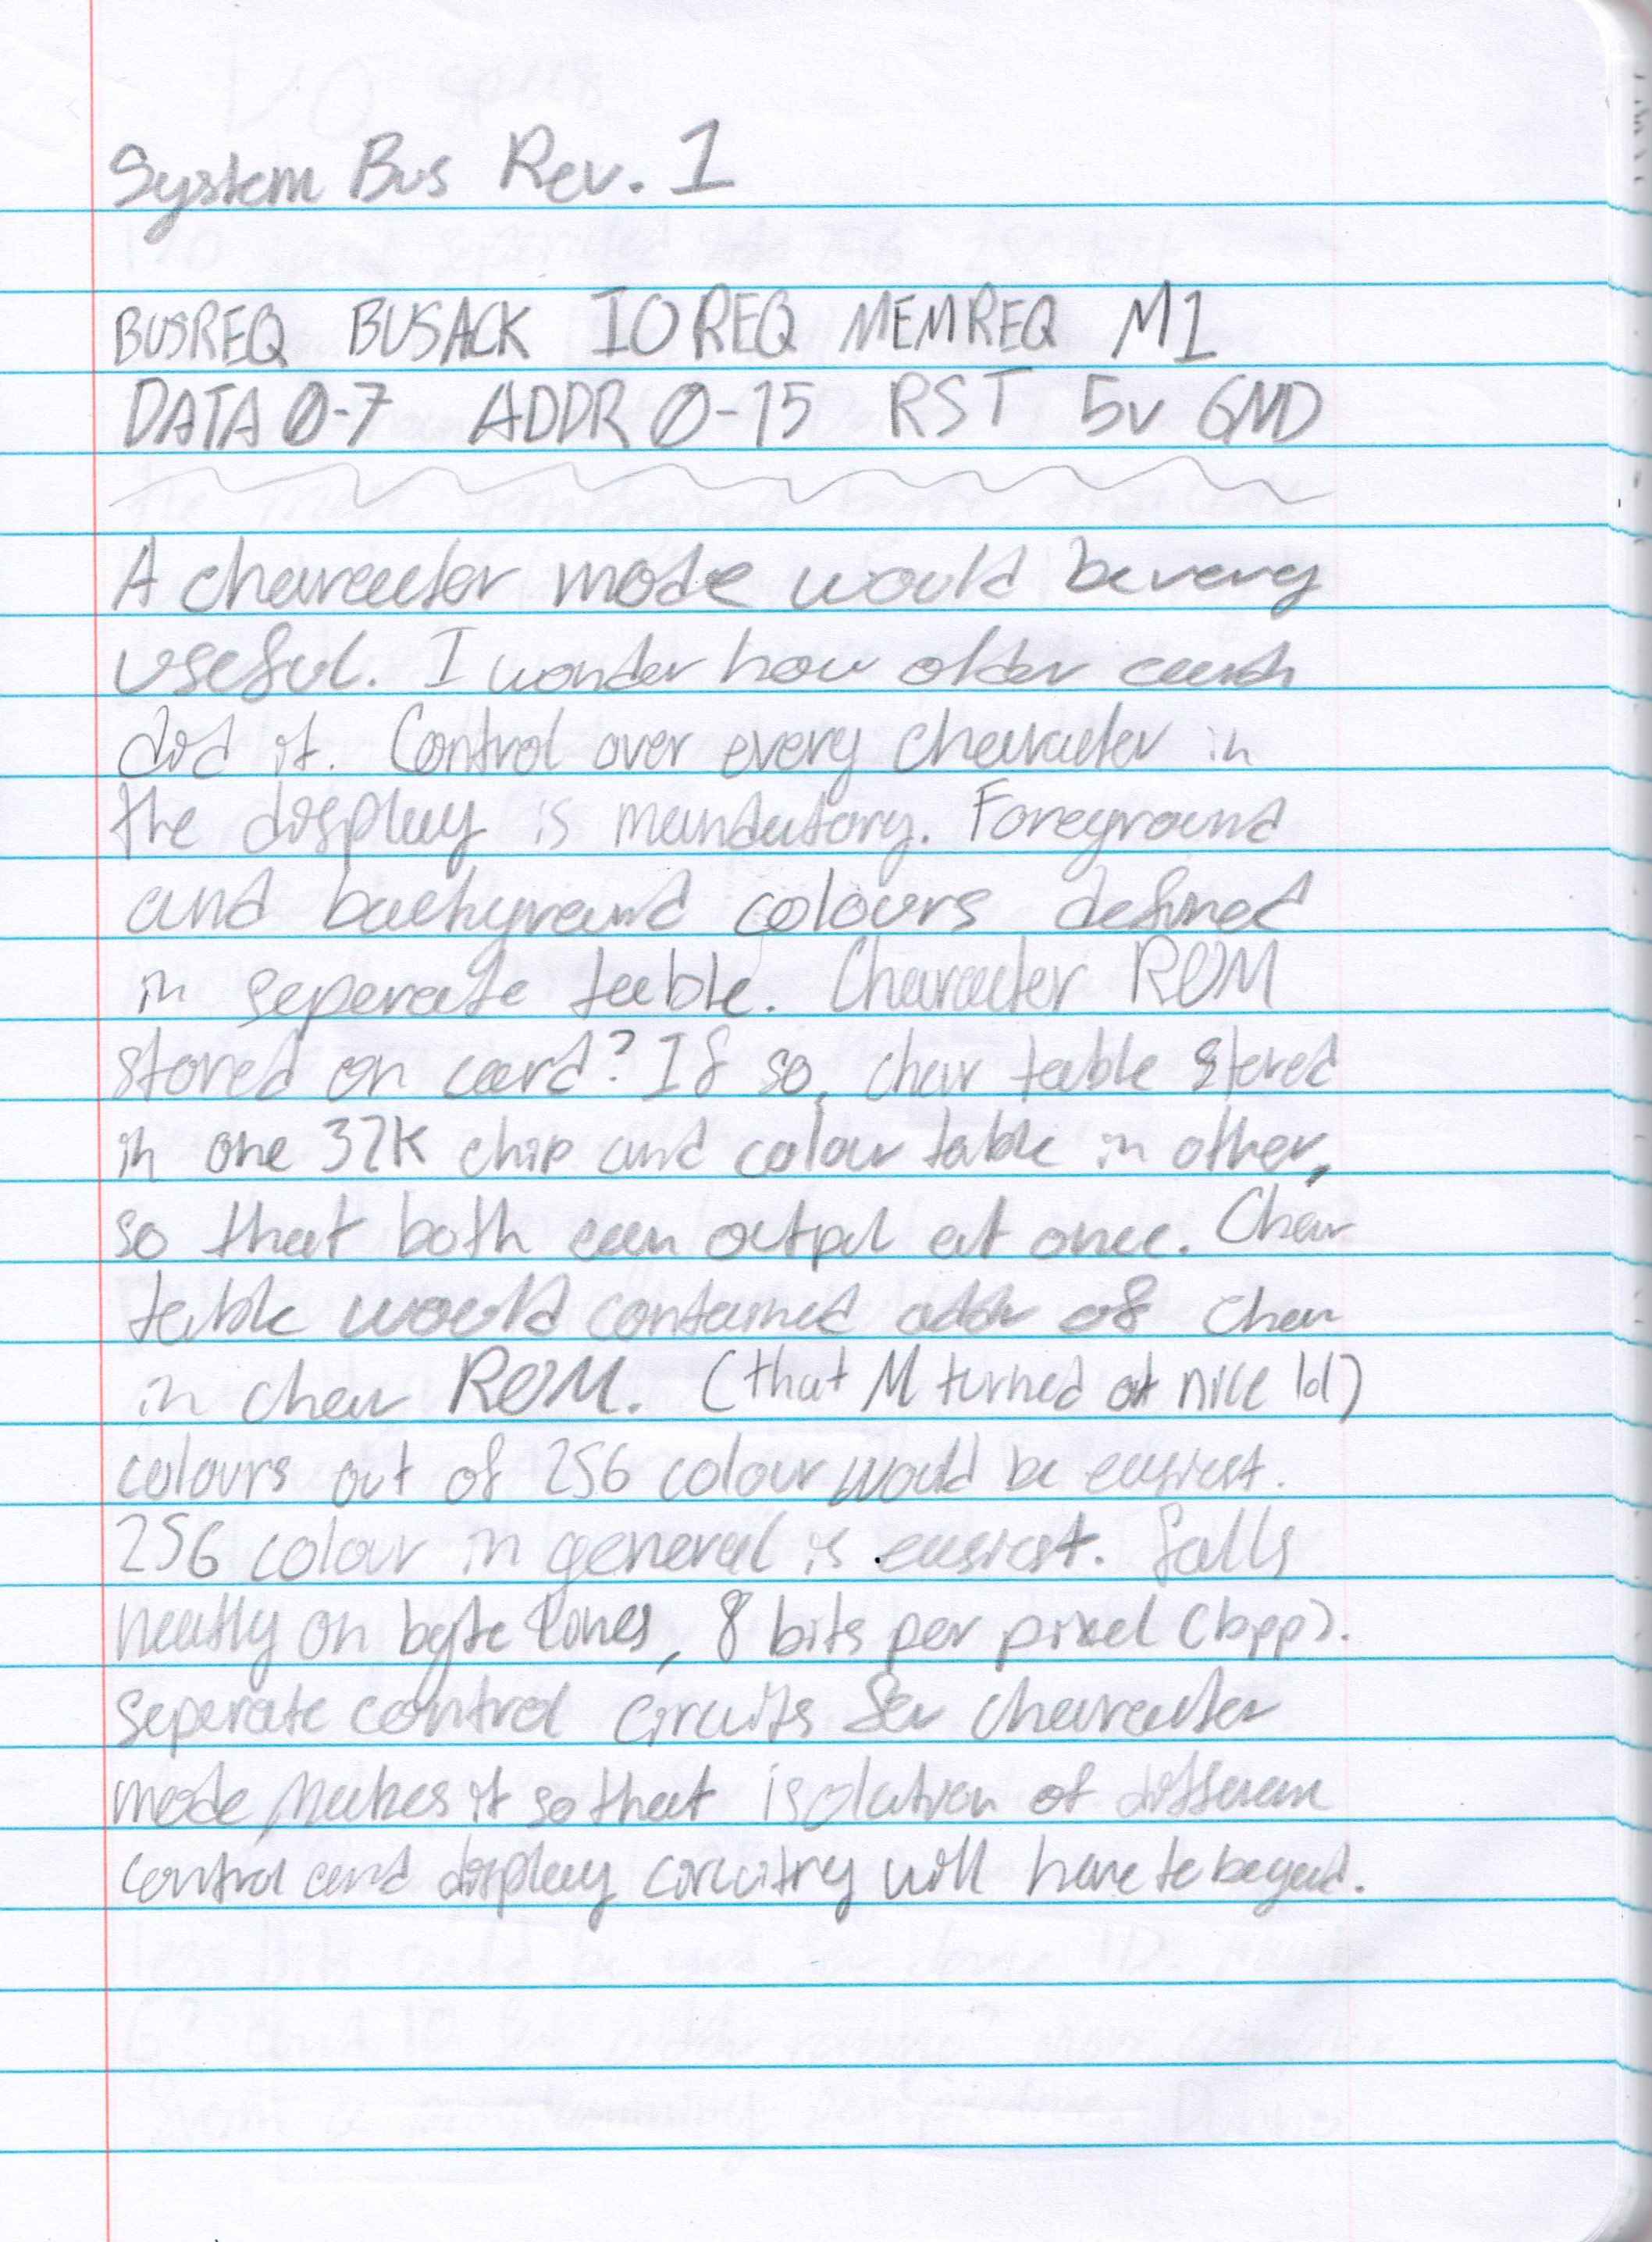 System Bus Rev. 1
BUSREQ BUSACK IOREQ MEMREQ M1
DATA 0-7 ADDR 0-15 RST 5v GND
A character mode would be very
useful. I wonder how older cards
did it. Control over every character in
the display is mandatory. Foreground
and background colours defined
in seperate table. Character ROM
stored on card? If so, char table stored
in one 32K chip and colour table in other,
so that both can output at once. Char
table would contained addr of char
in char ROM. (that M turned out nice lol)
colours out of 256 colour would be easiest.
256 colour in general is easiest. falls
neatly on byte lines, 8 bits per pixel (bpp).
Seperate control circuits for character
mode makes it so that isolation of different
control and display circuitry will have to be good.